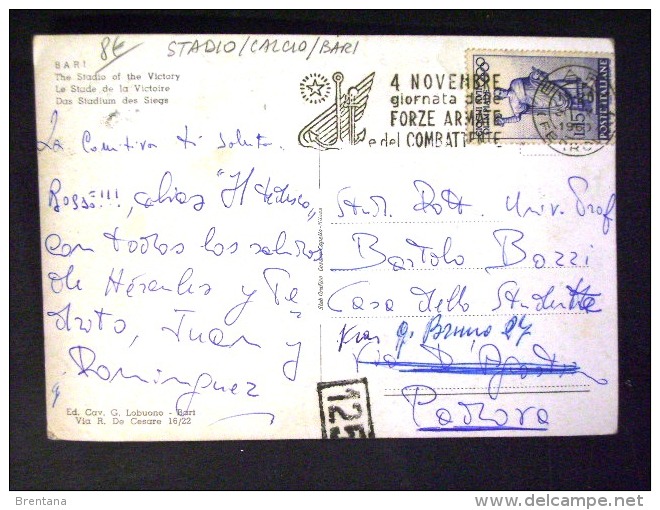 8€
STADIO/CALCIO/BARI
BARI
The Stadio of the Victory
Le Stade de la Victoire
Das Stadium des Siegs
4 NOVEMBRE
giornata delle
FORZE ARMATE
e del COMBATTENTE
POSTE ITALIANE
La Comitiva ti saluta.
con todos los saludos
de Hércules y Pe
droto, Juan y
Dominguez
Stud. Dott. Univ. Prof
Bartolo Bozzi
Casa dello Studente
Via G. Bruno 27
Padova
125
Ed. Cav. G. Lobuono - Bari
Via R. De Cesare 16/22
Brentana
delcampe.net